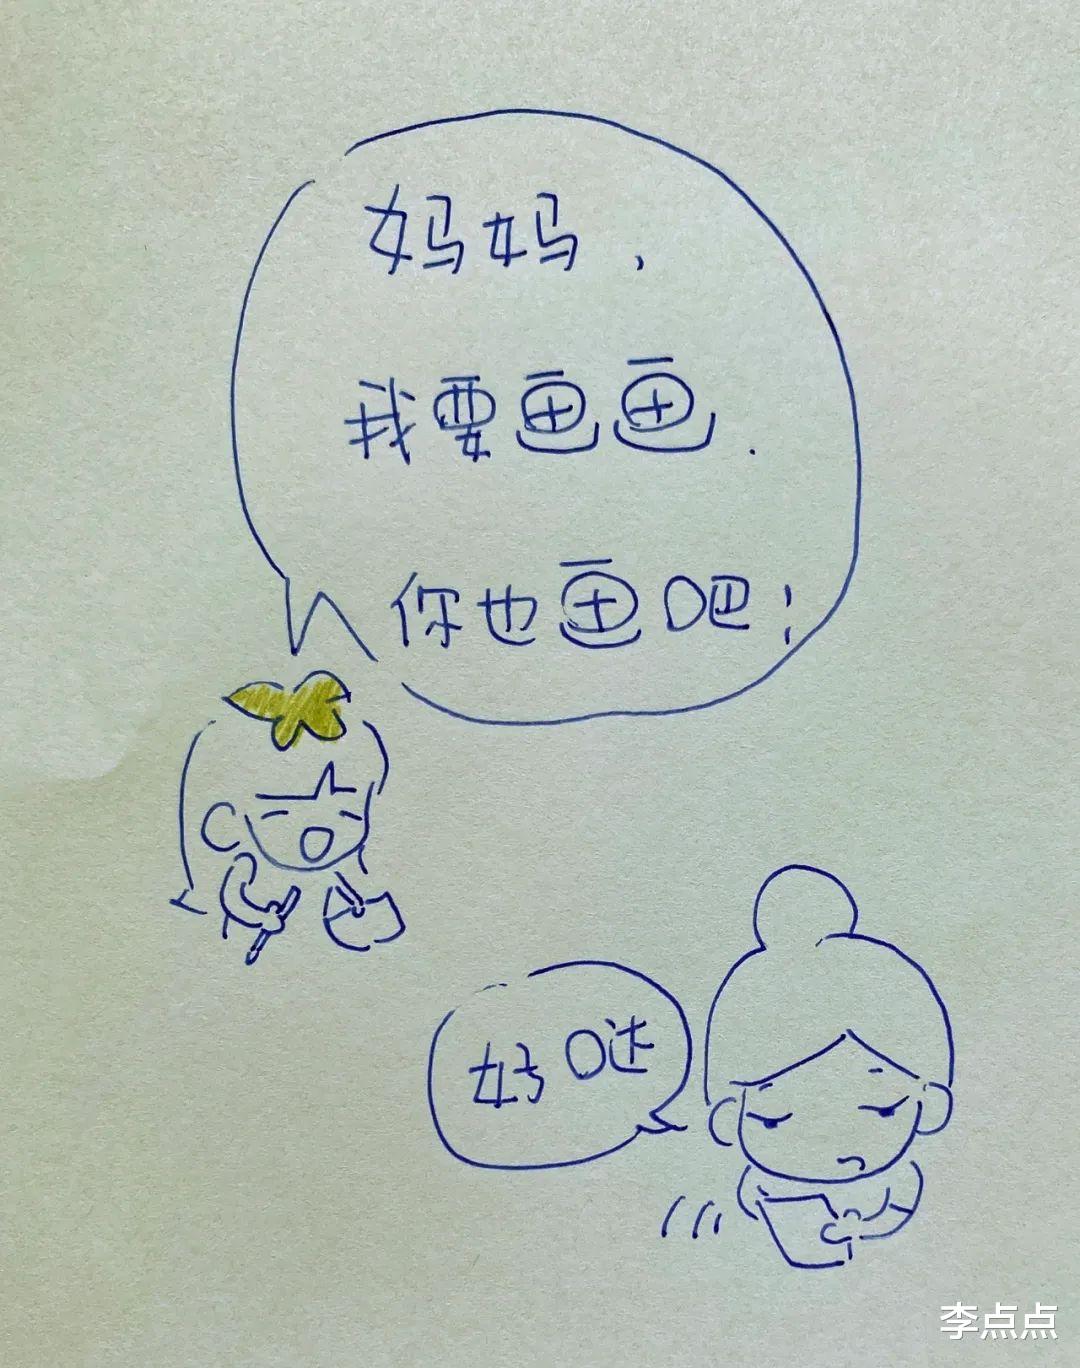 妈妈，
我要画画.
你也画吧！
好哒
李点点